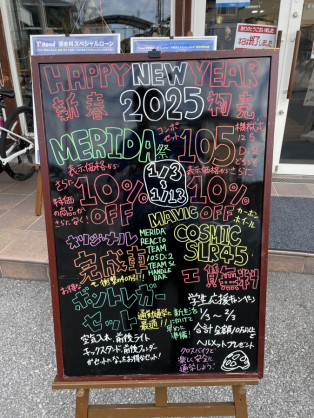 HAPPY NEW YEAR
新春 2025 初売
MERIDA祭
コンポーセット 105
機械式
12S
Di2
どちらも
表示価格から
さらに 10% OFF
1/3〜1/13
表示価格から
10% OFF
MAVIC
カーボンホイール
COSMIC
SLR45
工賃無料
オリジナル
完成車
MERIDA
REACTO
TEAM
105Di2
TEAM SL
HANDLE
BAR
お得な
ボントレガー
セット
通勤通学に
最適!!
新生活に向けて
早めに
準備!
空気入れ、前後ライト
キックスタンド、前後フェンダー
がセットになったお得なセット!
学生応援キャンペーン
1/3〜2/3
合計金額10万以上で
ヘルメットプレゼント
クロスバイクで
楽しく安全に
通学しよう!